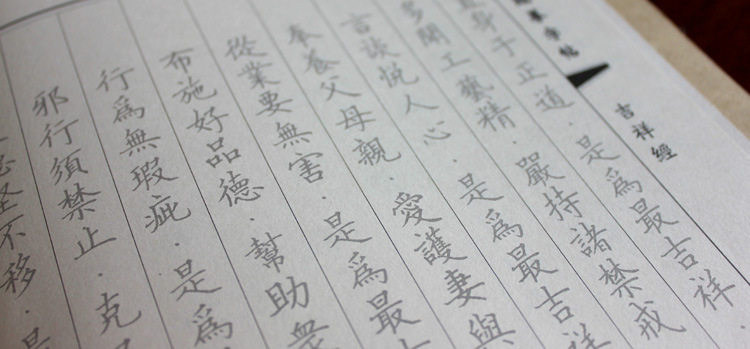 吉祥經
身于正道．是爲最吉祥．
多聞工藝精．嚴持諸禁戒
言談悅人心．是爲最吉祥
奉養父母親．愛護妻與
從業要無害．是爲最
布施好品德．幫助眾
行爲無瑕疵．是爲
邪行須禁止．克
堅不移．是